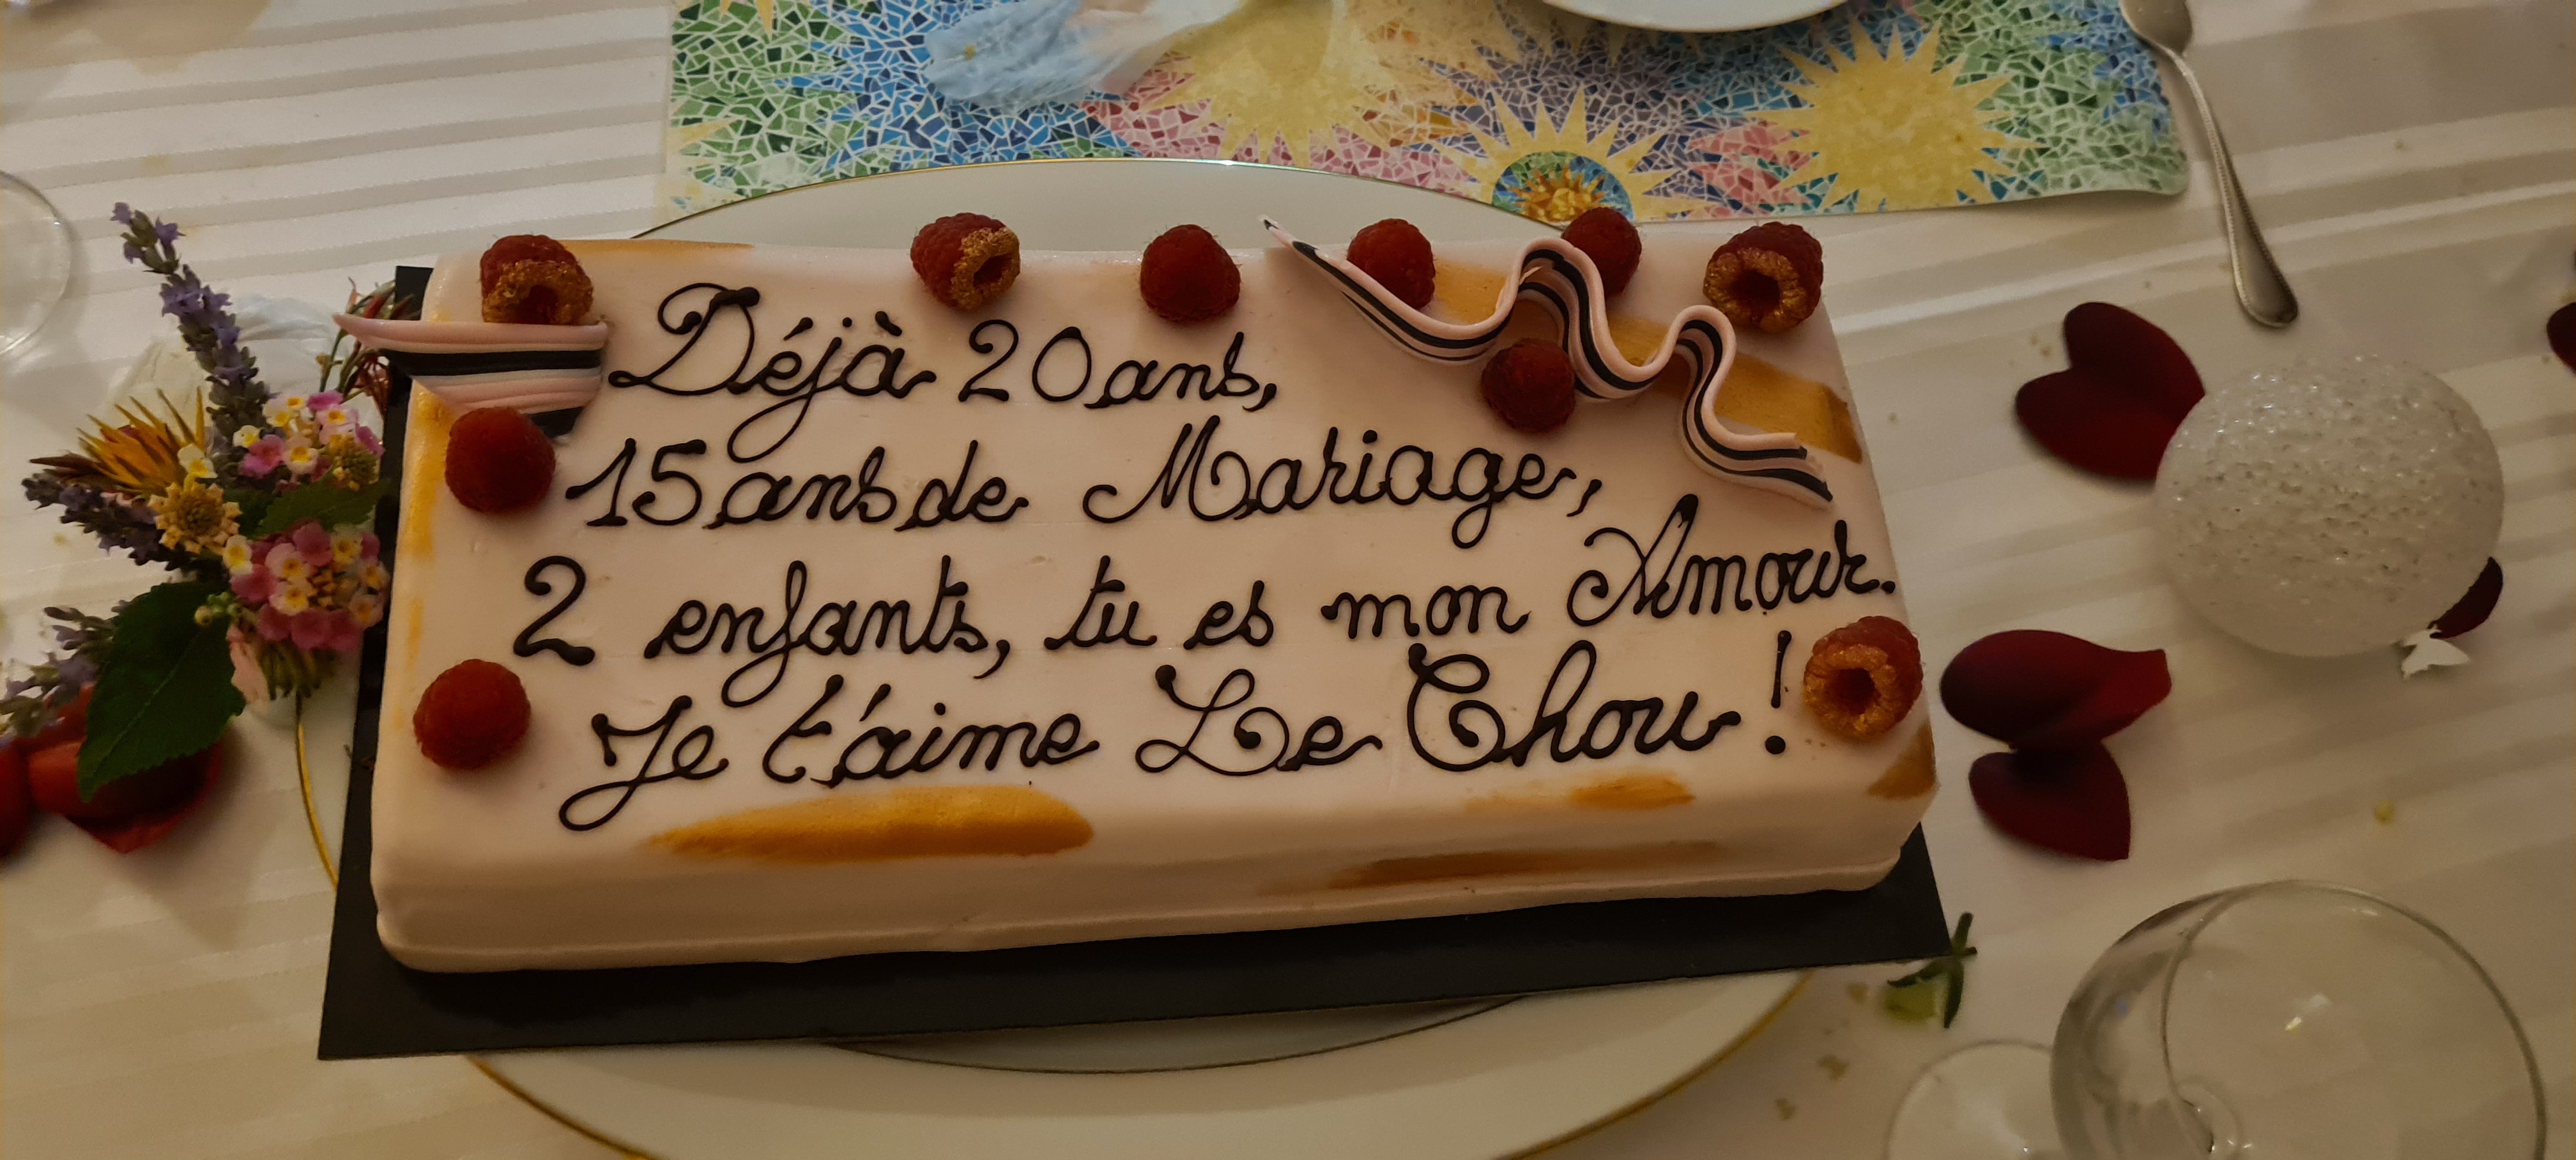 Déjà 20 ans,
15 ans de Mariage,
2 enfants, tu es mon Amour.
Je t'aime Le Chou !